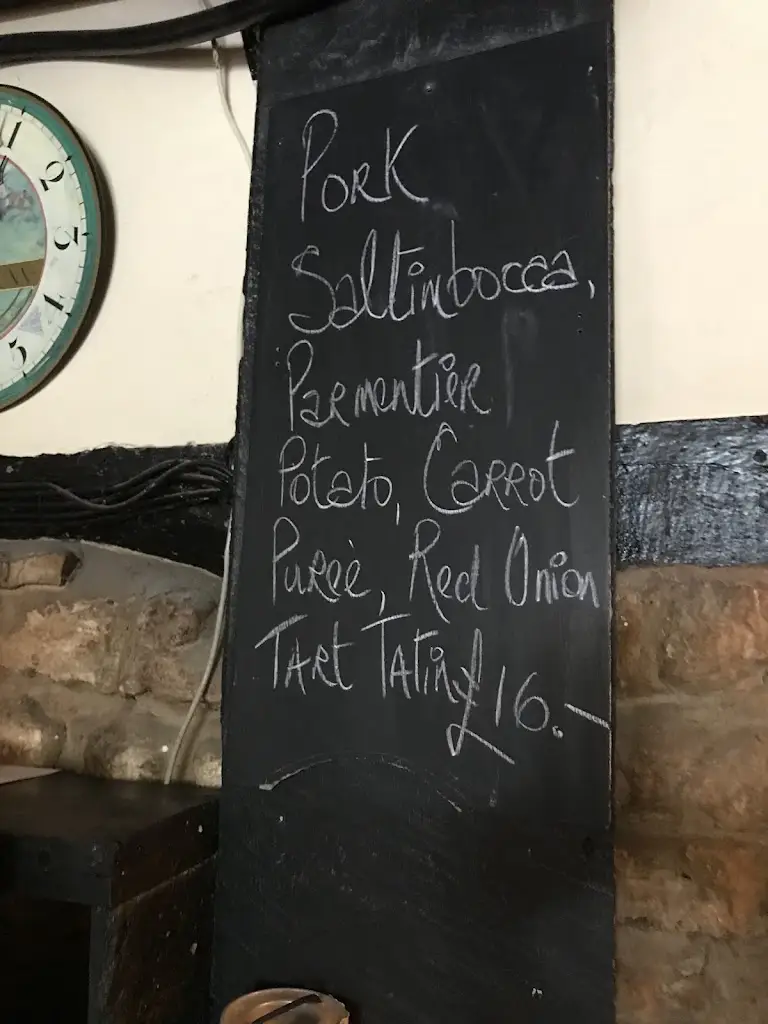 Pork
Saltimbocca,
Parmentier
Potato, Carrot
Pureè, Red Onion
Tart Tatin £16.–
1
2
3
4
5